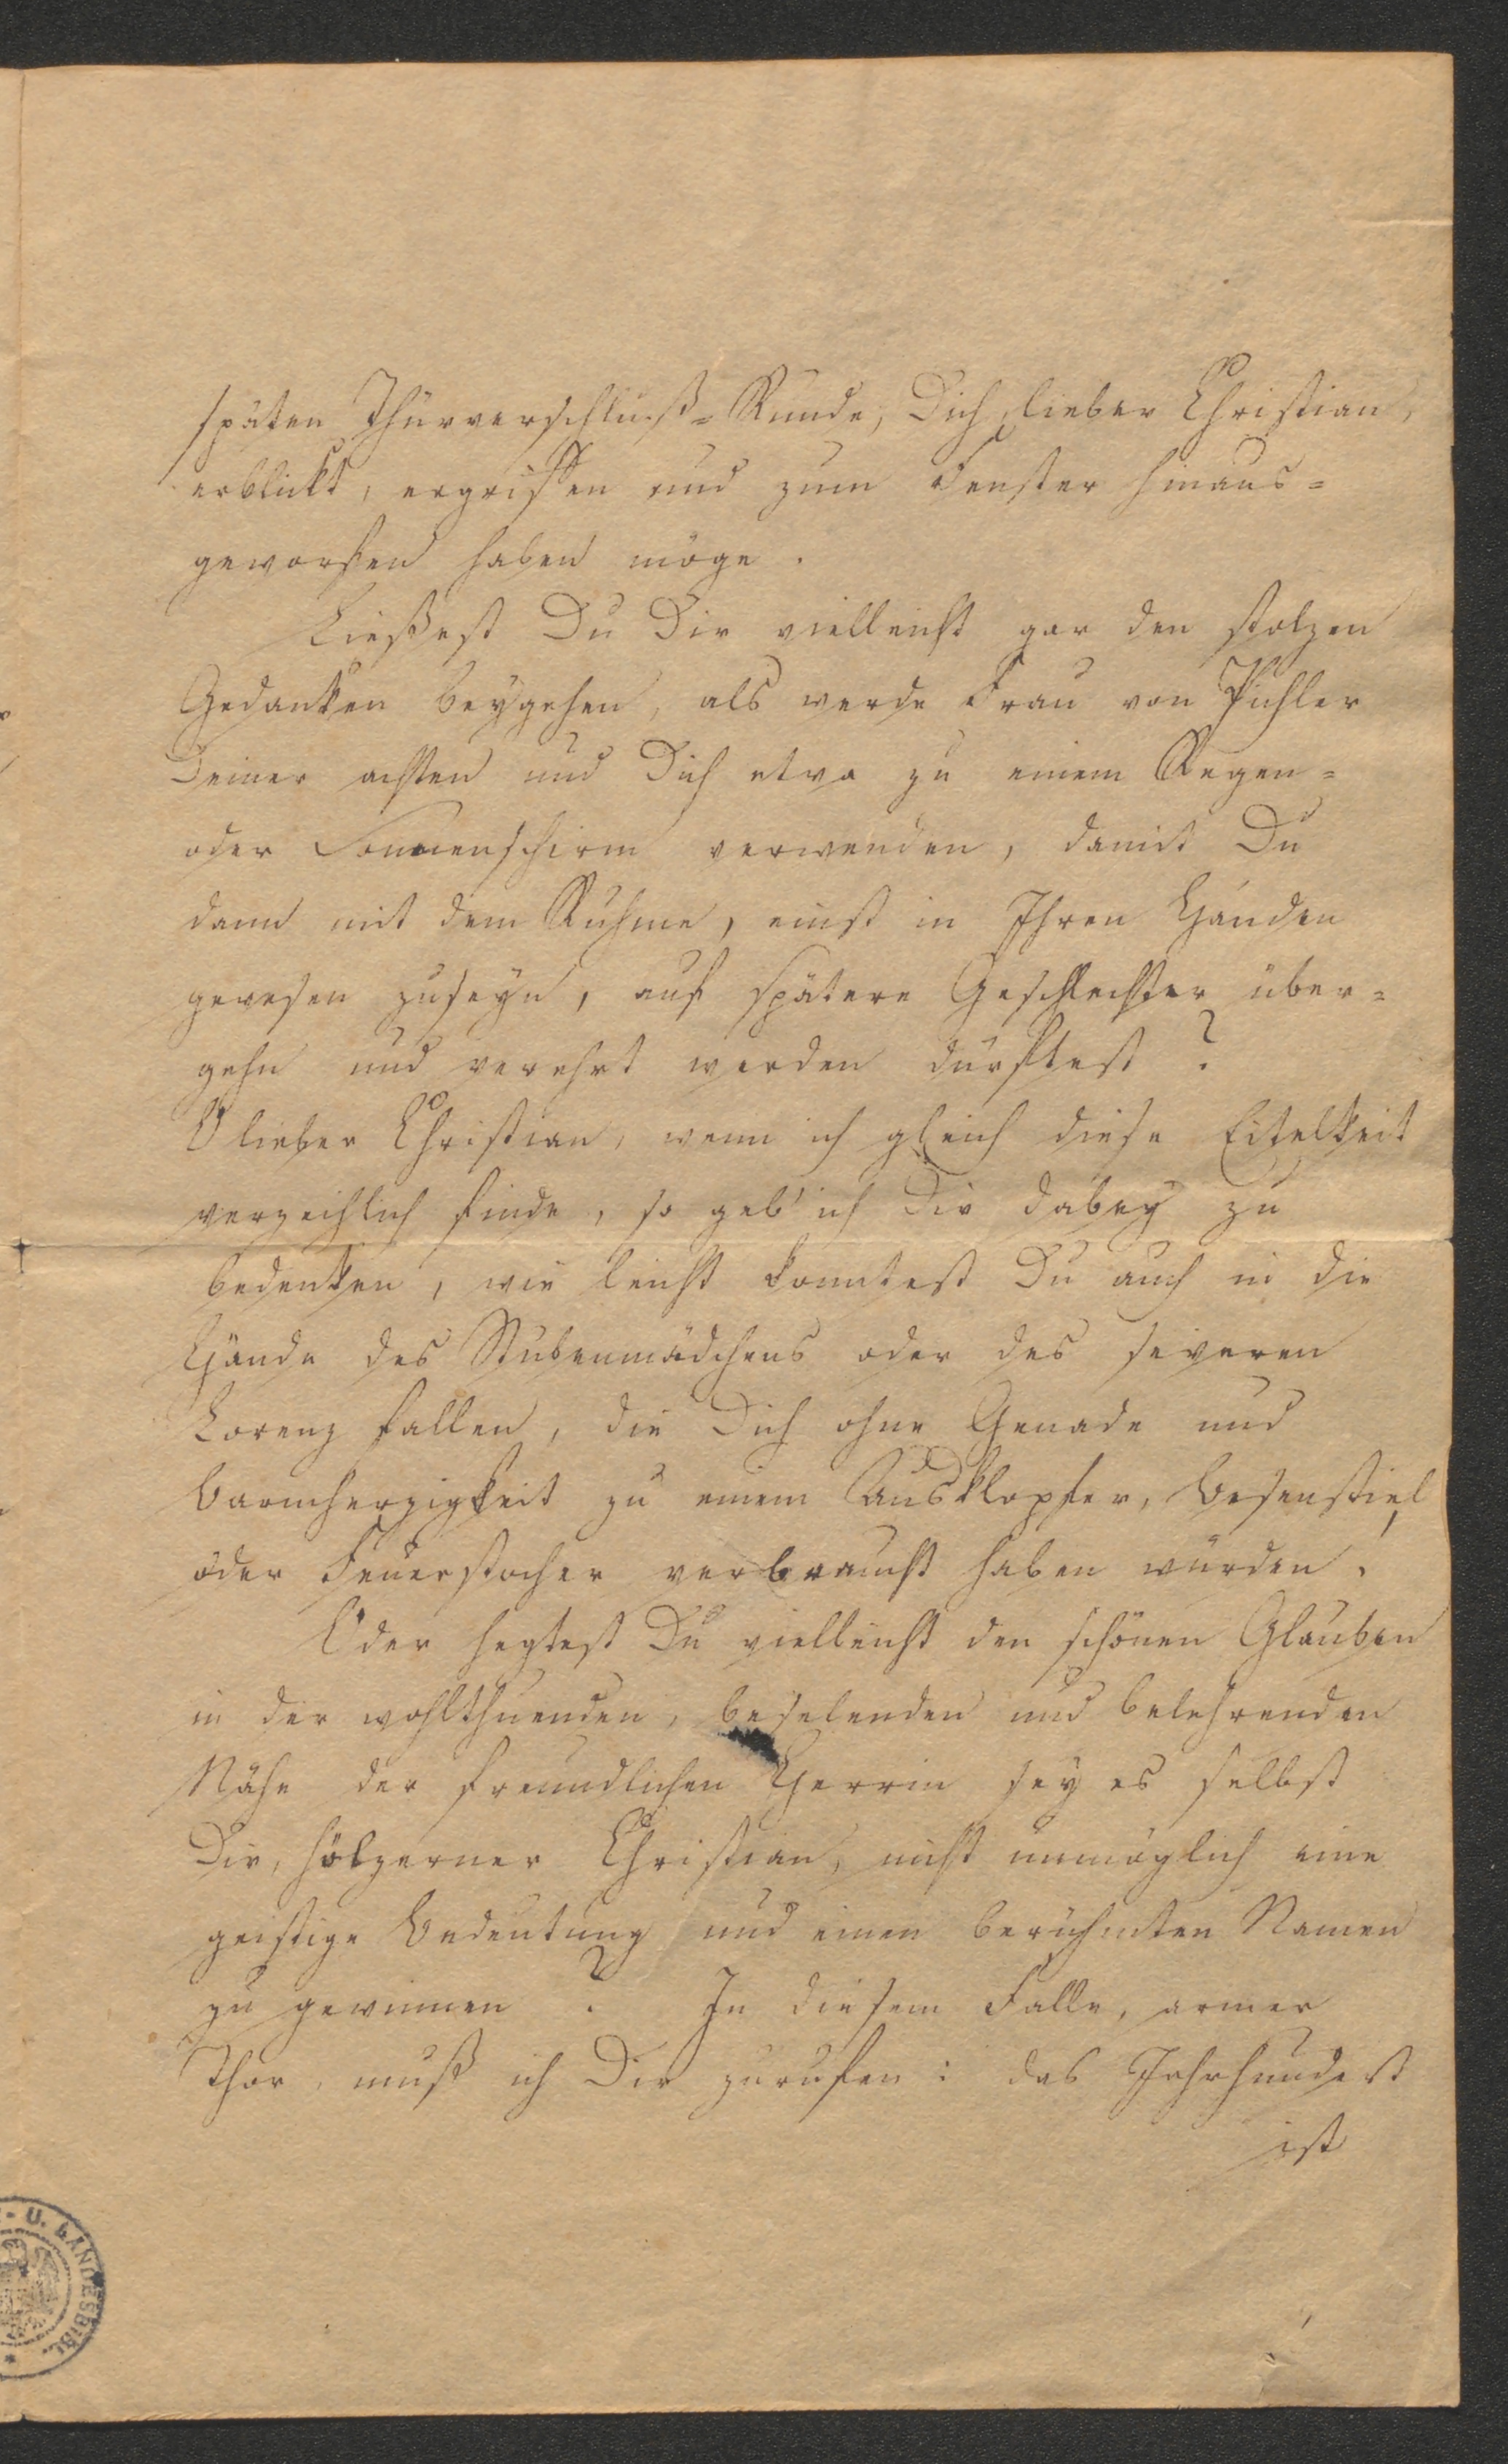 späten Thürverschluß-Runde, Dich, lieber Christian,
erblickt, ergriffen und zum Fenster hinaus-
geworfen haben möge.
Ließest Du Dir vielleicht gar den stolzen
Gedanken beygehen, als werde Frau von Pichler
Deiner achten und Dich etwa zu einem Regen-
oder Sonnenschirm verwenden, damit Du
dann mit dem Ruhme, einst in Ihren Händen
gewesen zuseyn, auf spätere Geschlechter über-
gehn und verehrt werden dürftest?
O lieber Christian, wenn ich gleich diese Eitelkeit
verzeihlich finde, so geb' ich Dir dabey zu
bedenken, wie leicht konntest Du auch in die
Hände des Stubenmädchens oder des severen
Lorenz fallen, die Dich ohne Genade und
Barmherzigkeit zu einem Ausklopfer, Besenstiel
oder Feuerstocher verbraucht haben würden!
Oder hegtest Du vielleicht den schönen Glauben
in der wohlthuenden, beselenden und belehrenden
Nähe der freundlichen Herrin sey es selbst
Dir, hölzerner Christian, nicht unmöglich eine
geistige Bedeutung und einen berühmten Namen
zu gewinnen? In diesem Falle, armer
Thor, muß ich Dir zurufen: das Jahrhundert
ist
U. LANDESBIBL.